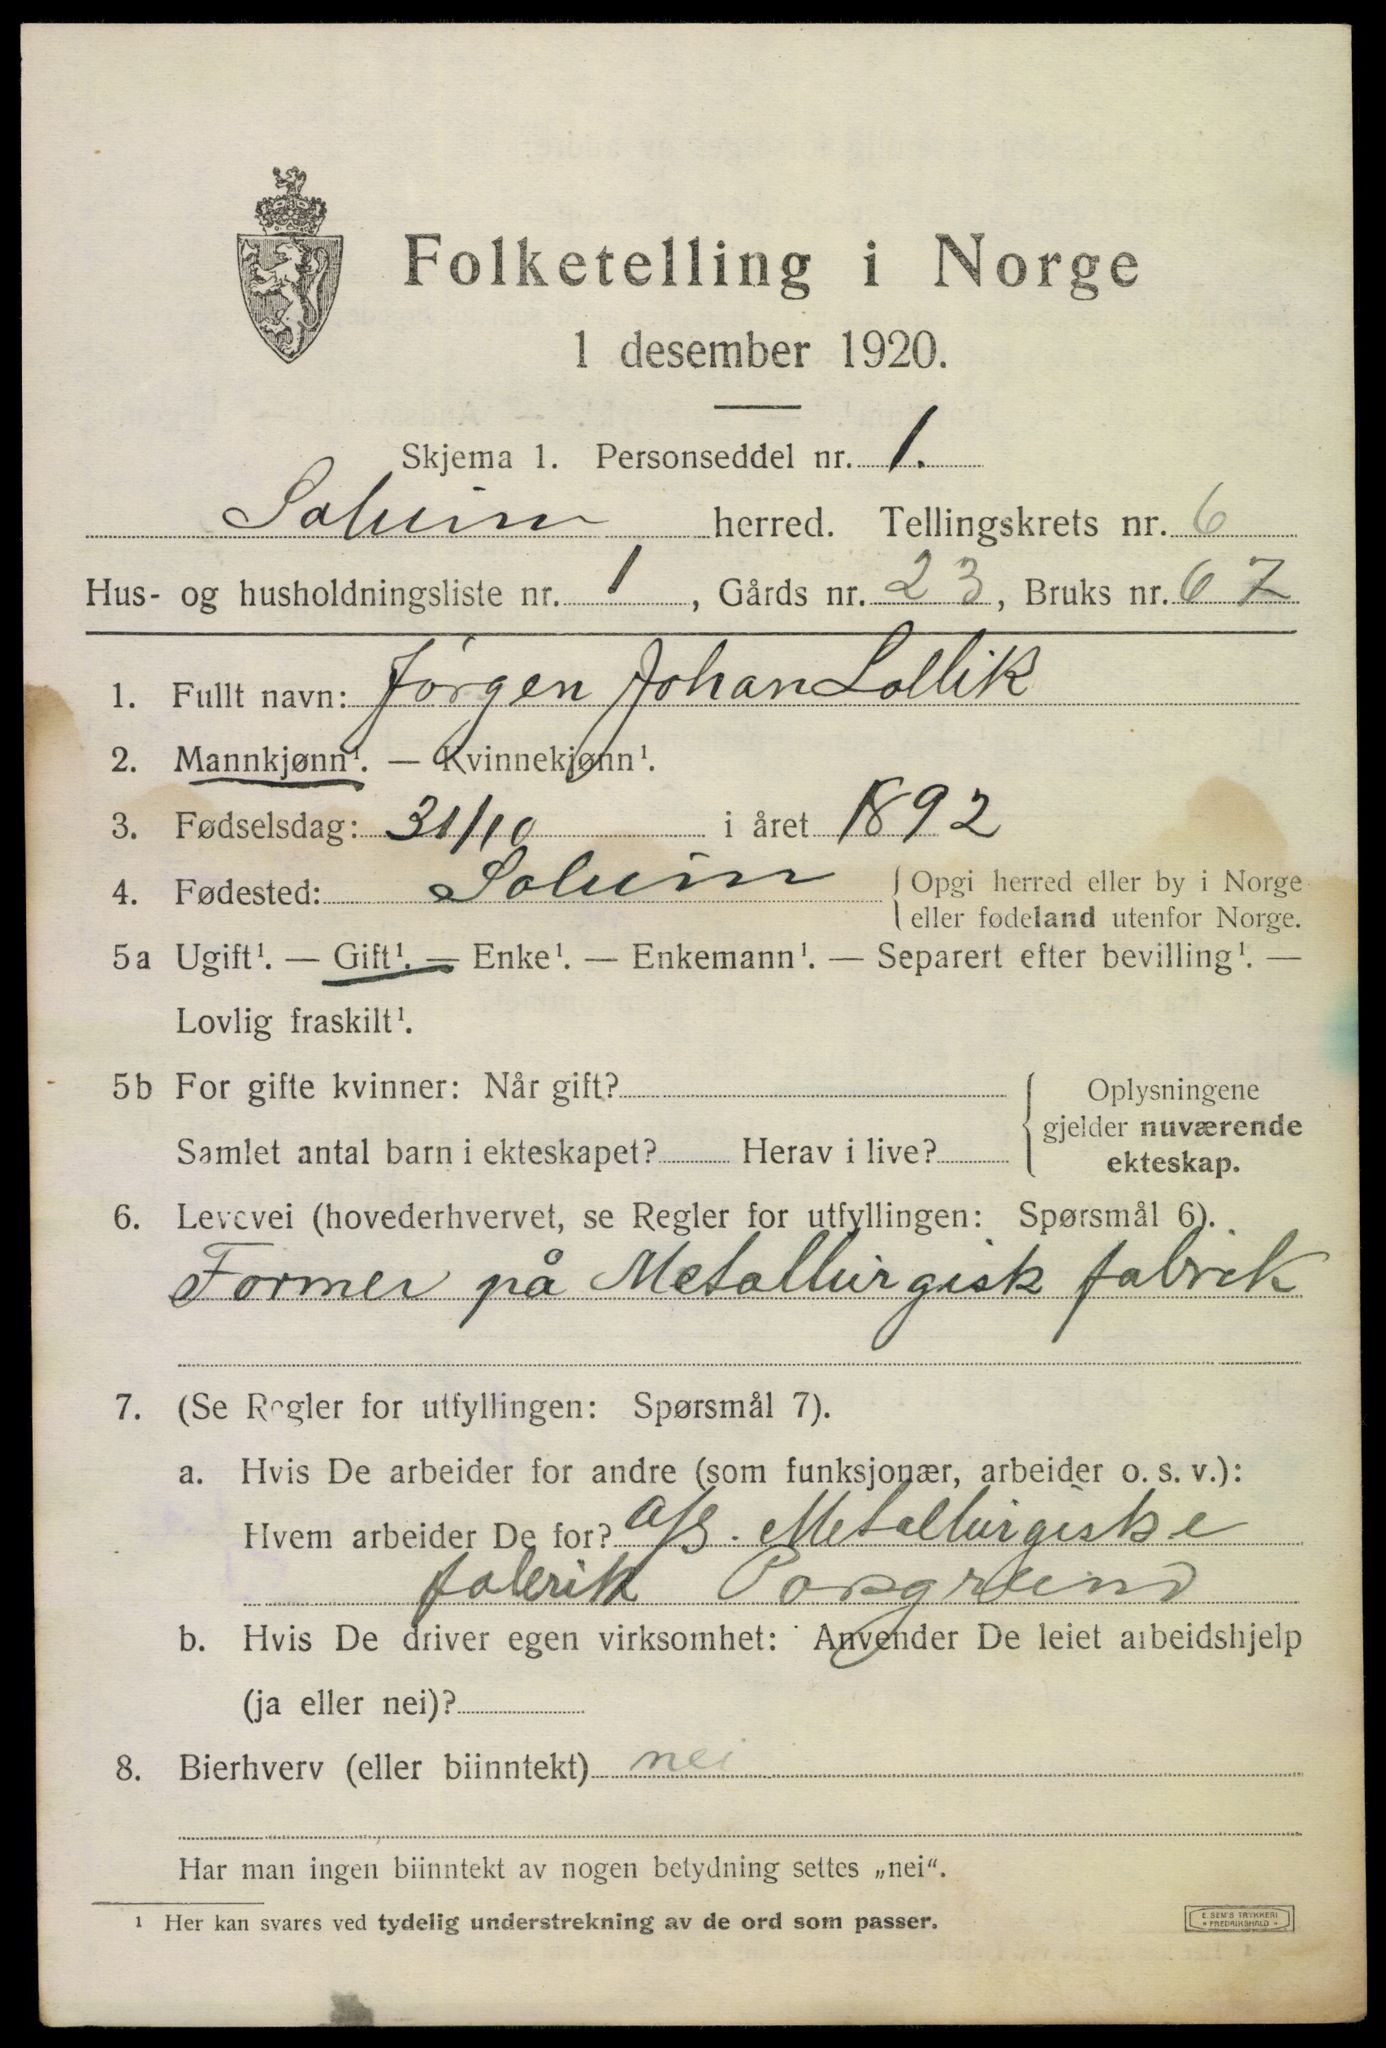 Folketelling i Norge
1 desember 1920.
Skjema 1. Personseddel nr. 1.
Solum herred. Tellingskrets nr. 6
Hus- og husholdningsliste nr. 1, Gårds nr. 23, Bruks nr. 67
1. Fullt navn: Jørgen Johan Lollik
2. Mannkjønn¹. — Kvinnekjønn¹.
3. Fødselsdag: 31/10 i året 1892
4. Fødested: Solum { Opgi herred eller by i Norge
eller fødeland utenfor Norge.
5a Ugift¹. — Gift¹. — Enke¹. — Enkemann¹. — Separert efter bevilling¹. —
Lovlig fraskilt¹.
5b For gifte kvinner: Når gift? { Oplysningene
gjelder nuværende
Samlet antal barn i ekteskapet? Herav i live?
ekteskap.
6. Levevei (hovederhvervet, se Regler for utfyllingen: Spørsmål 6).
Former på Metallurgisk fabrik
7. (Se Regler for utfyllingen: Spørsmål 7).
a. Hvis De arbeider for andre (som funksjonær, arbeider o. s. v.):
Hvem arbeider De for? A/S. Metallurgiske
fabrik Porsgrund
b. Hvis De driver egen virksomhet: Anvender De leiet arbeidshjelp
(ja eller nei)?
8. Bierhverv (eller biinntekt) nei
Har man ingen biinntekt av nogen betydning settes „nei“.
¹ Her kan svares ved tydelig understrekning av de ord som passer.
E. SEM'S TRYKKERI
FREDRIKSHALD